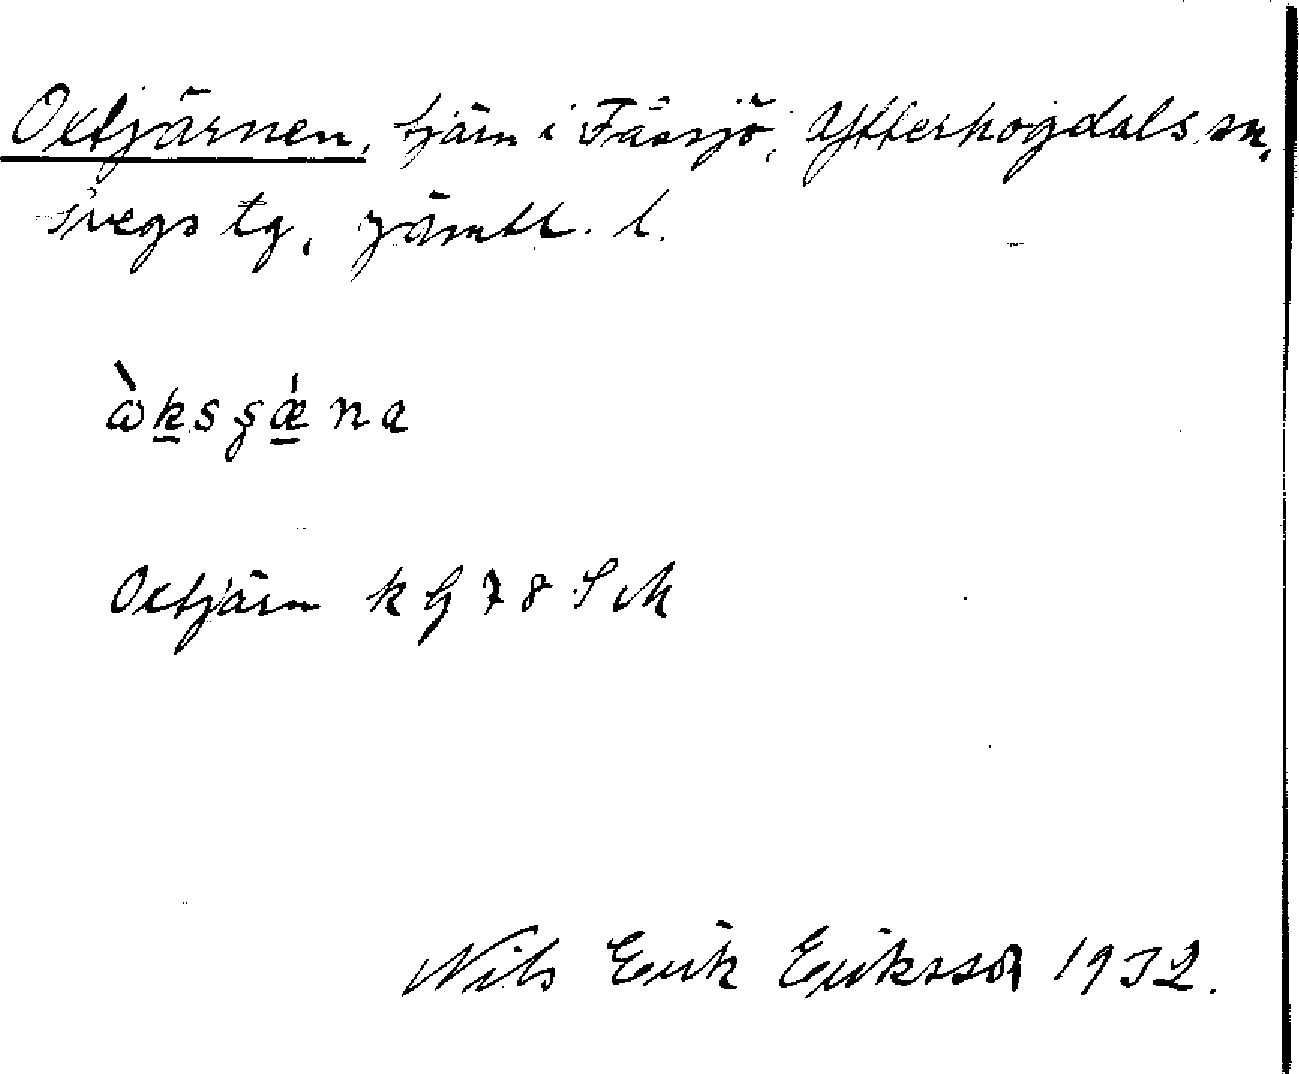 Oxtjärnen, tjärn i Fåssjö, Ytterhogdals sn,
Svegs tg, Jämtl. l.
ὼksʂǽna
Oxtjärn k G 78 S M
Nils Erik Eriksson 1932.